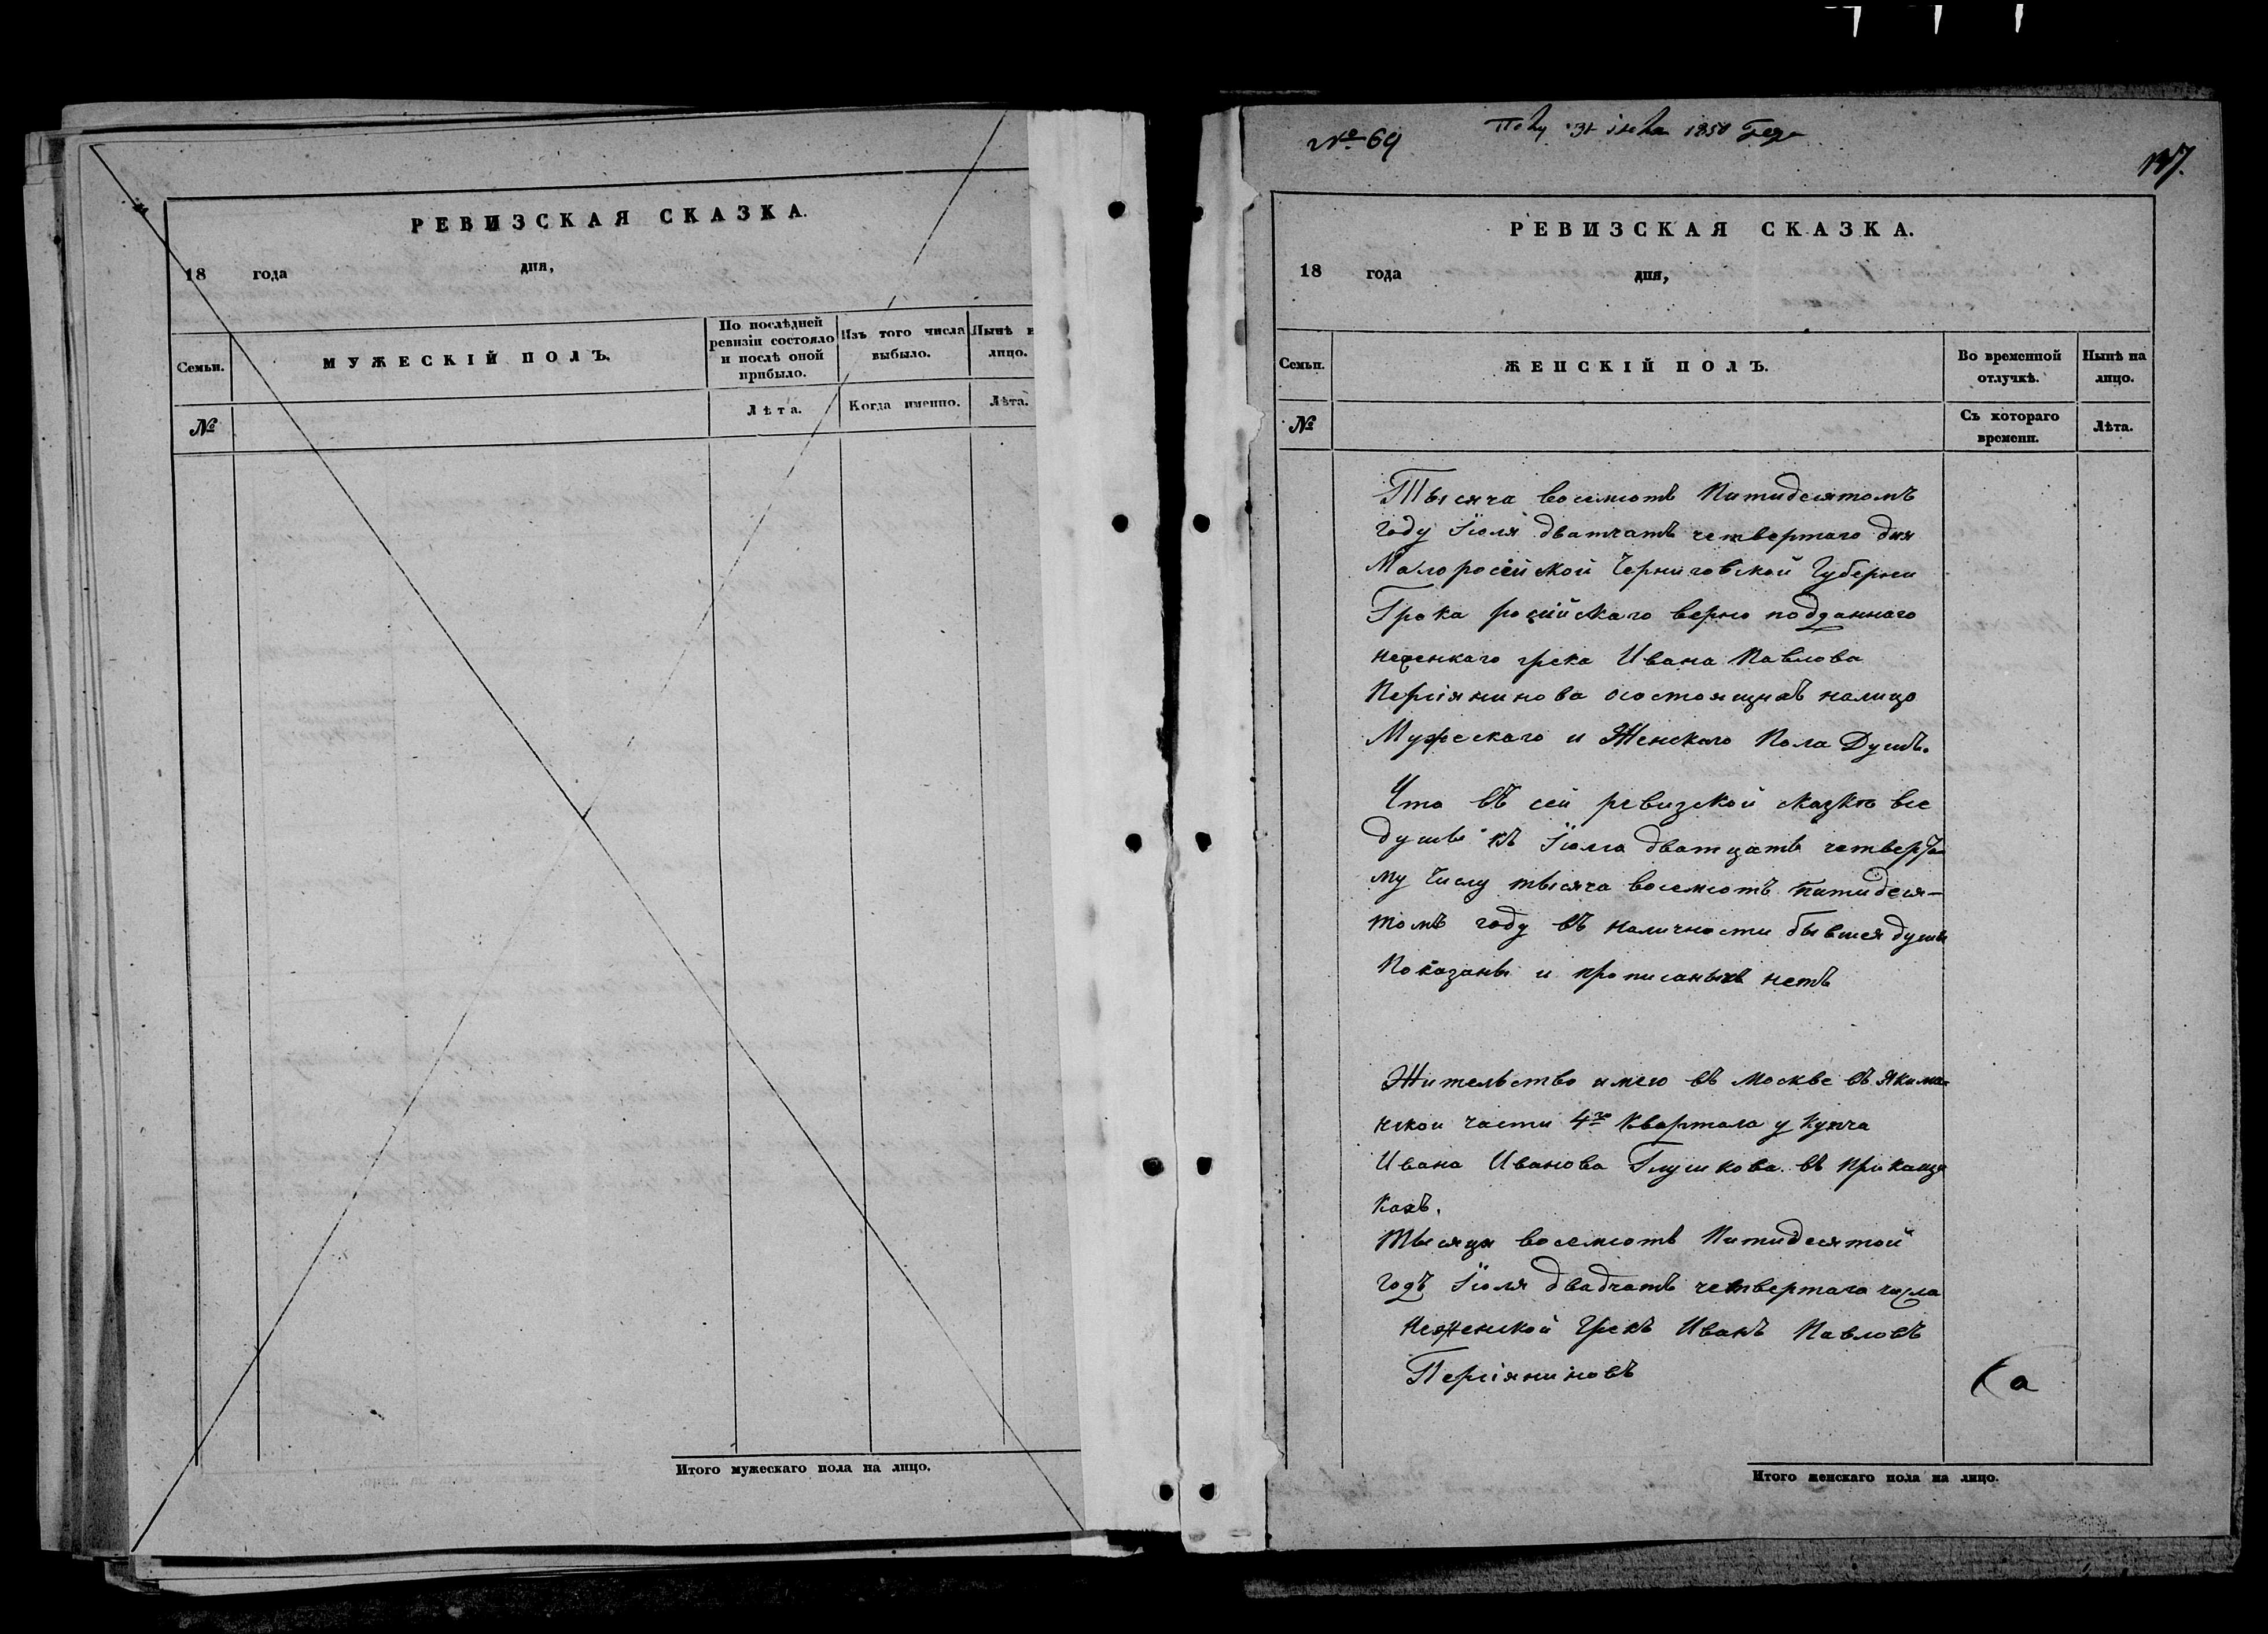 РЕВИЗСКАЯ СКАЗКА.
18 года дня,
Семьи.
МУЖЕСКІЙ ПОЛЪ.
По послѣдней ревизіи состояло и послѣ оной прибыло.
Изъ того числа выбыло.
Нынѣ н
лицо.
№
Лѣта.
Когда именно.
Лѣта.
Итого мужескаго пола на лицо.
№ 69
31 1850 Года
РЕВИЗСКАЯ СКАЗКА.
18 года дня,
Семьи.
ЖЕНСКІЙ ПОЛЪ.
Во временной отлучкѣ.
Нынѣ на лицо.
№
Съ котораго времени.
Лѣта.
Тысяча восемсотъ Питидесятомъ
году Іюля дватчатъ четвертаго дня
Малоросійской Черниговской Губерни
Грека росийскаго верно подданнаго
неженкаго грека Ивана Павлова
Персіянинова осостоящихъ налицо
Мужескаго и Женскаго Пола Душъ.
Что въ сей ревизской сказке все
душы къ Іюлю дватцать четверта
му Числу тысяча восемсотъ питидеся-
томъ году въ наличности бывшея душы
Показаны и прописаныхъ нетъ
Жительство имею въ Москве въ Якима-
нской части 4го Квартала у Купча
Ивана Иванова Глушкова въ прикащи
кахъ.
Тысяця восемсотъ Питидесятой
годъ Іюля двадчатъ четвертаго числа
Неженской Грекъ Иванъ Павловъ
Персіяниновъ
Итого женскаго пола на лицо.